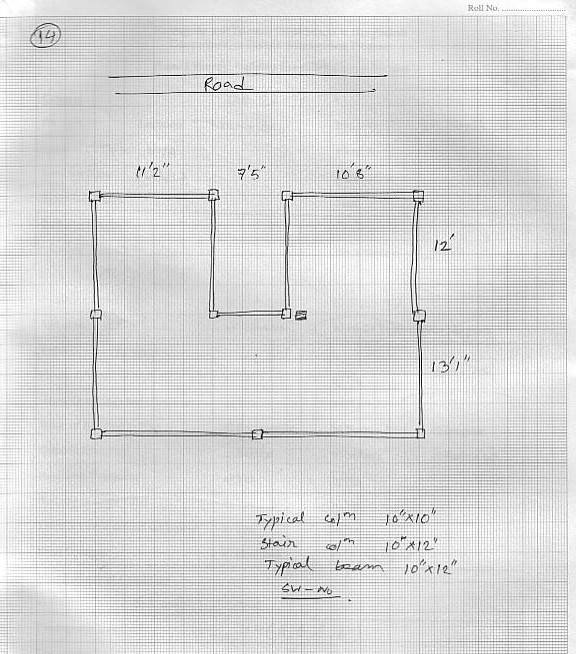 Roll No. ..............................
14
Road
11'2" 7'5" 10'8"
12'
13'1"
Typical colm 10"x10"
Stair colm 10"x12"
Typical beam 10"x12"
SW-No.